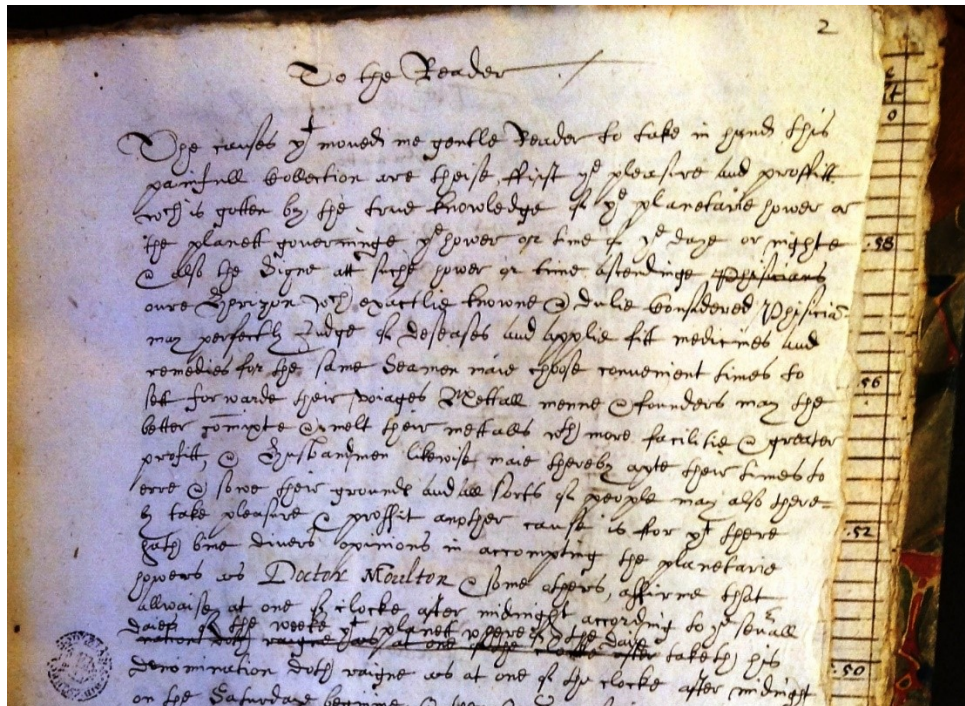 2
To the Reader
The causes yt moved me gentle Reader to take in hand this
painfull Collection are theise, ffirst ye pleasure and proffitt
wch is gotten by the true knowledge of ye planetarie hower or
the planett governinge ye hower or time of ye daye or nighte
& also the Signe att suche hower or time ascendinge Phisicians
oure Horizon wch exactlie knowne & dulie Considered Phisiciā
may perfectly Judge of deseases and applie fitt medicines and
remedies for the same Seamen maie choose convenient times to
sett forwarde their voiages Mettall menne & founders may the
better & melt their mettalls wth more facilitie & greater
profitt, & Husbandmen likewise maie thereby their times to
erre & sowe their grounds and all sorts of people may also there=
by take pleasure & proffit another cause is for yt there
hath bine divers opinions in accompting the planetarie
howers as Doctor Moulton & some others, affirme that
allwaise at one of clocke after midnight according to ye sevrall
daies of the weeke yt planet whereof the daie taketh his
denomination doth raigne as at one of the clocke after midnight
on the Saturdaie
58
56
52
50